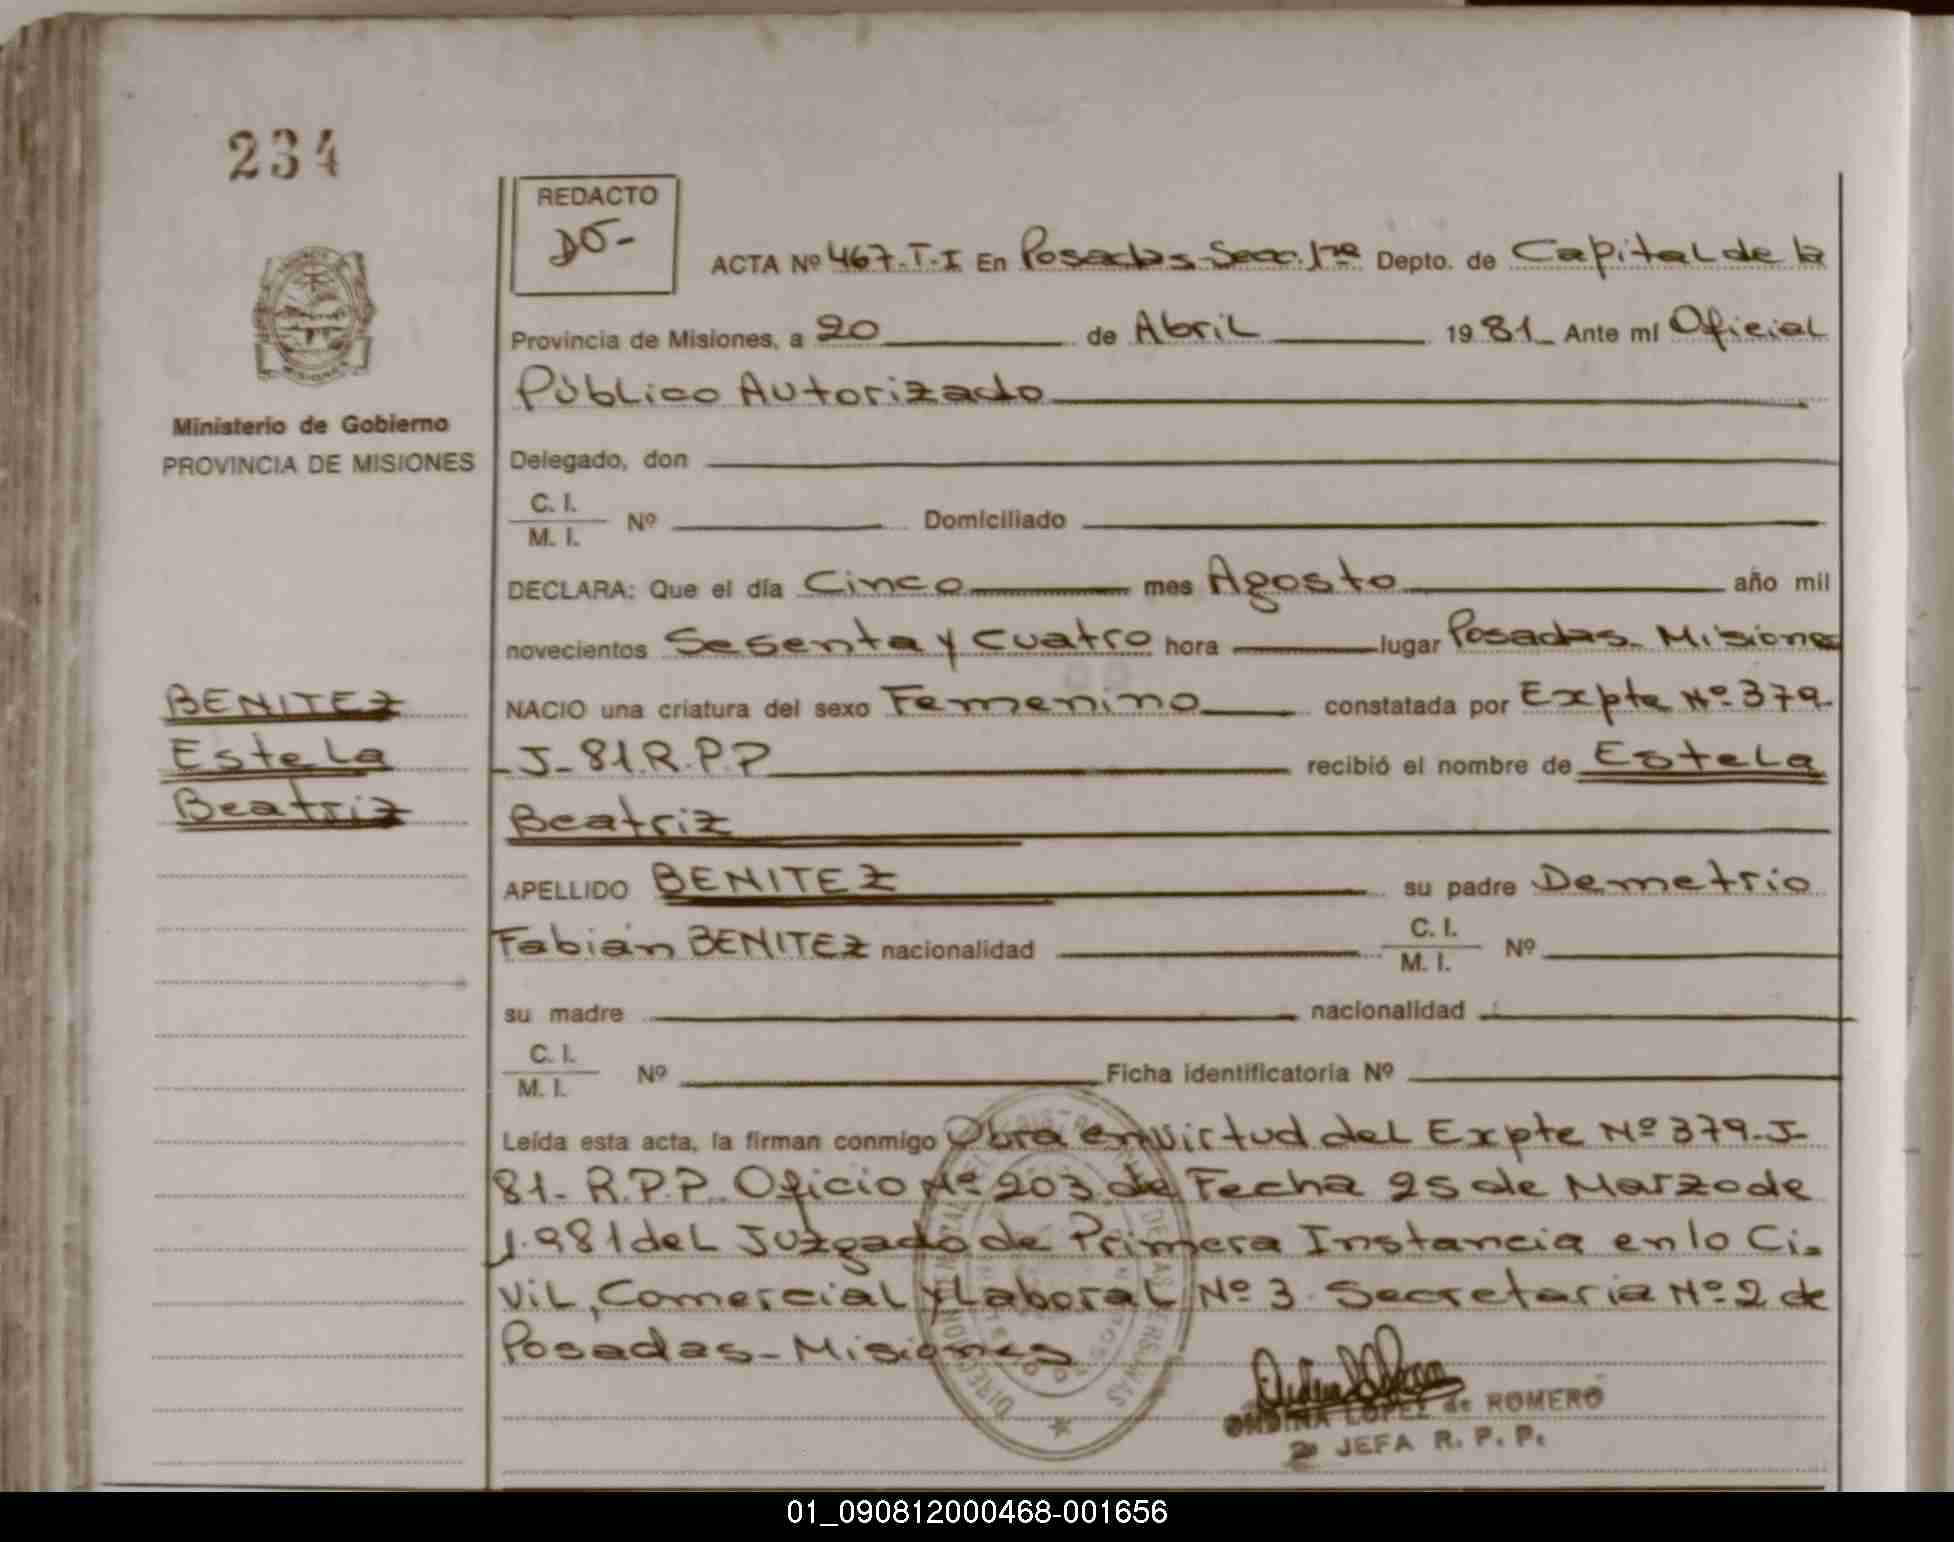 234
REDACTO
DO-
ACTA Nº 467-T-I En Posadas-Secc. 1ra Depto. de Capital de la
Provincia de Misiones, a 20 de Abril 1981 Ante mí Oficial
Público Autorizado
Ministerio de Gobierno
PROVINCIA DE MISIONES
Delegado, don
C. I.
M. I. Nº Domiciliado
DECLARA: Que el día Cinco mes Agosto año mil
novecientos Sesenta y Cuatro hora lugar Posadas-Misiones
BENITEZ
Estela
Beatriz
NACIO una criatura del sexo Femenino constatada por Expte Nº 379
-J-81.R.P.P recibió el nombre de Estela
Beatriz
APELLIDO BENITEZ su padre Demetrio
Fabián BENITEZ nacionalidad C. I.
M. I. Nº
su madre nacionalidad
C. I.
M. I. Nº Ficha identificatoria Nº
Leída esta acta, la firman conmigo Obra en virtud del Expte Nº 379-J-
81-R.P.P Oficio Nº 203 de Fecha 25 de Marzo de
1.981 del Juzgado de Primera Instancia en lo Ci-
vil, Comercial y Laboral Nº 3 Secretaria Nº 2 de
Posadas-Misiones
ONDINA LOPEZ de ROMERO
JEFA R. P. P.
01_090812000468-001656